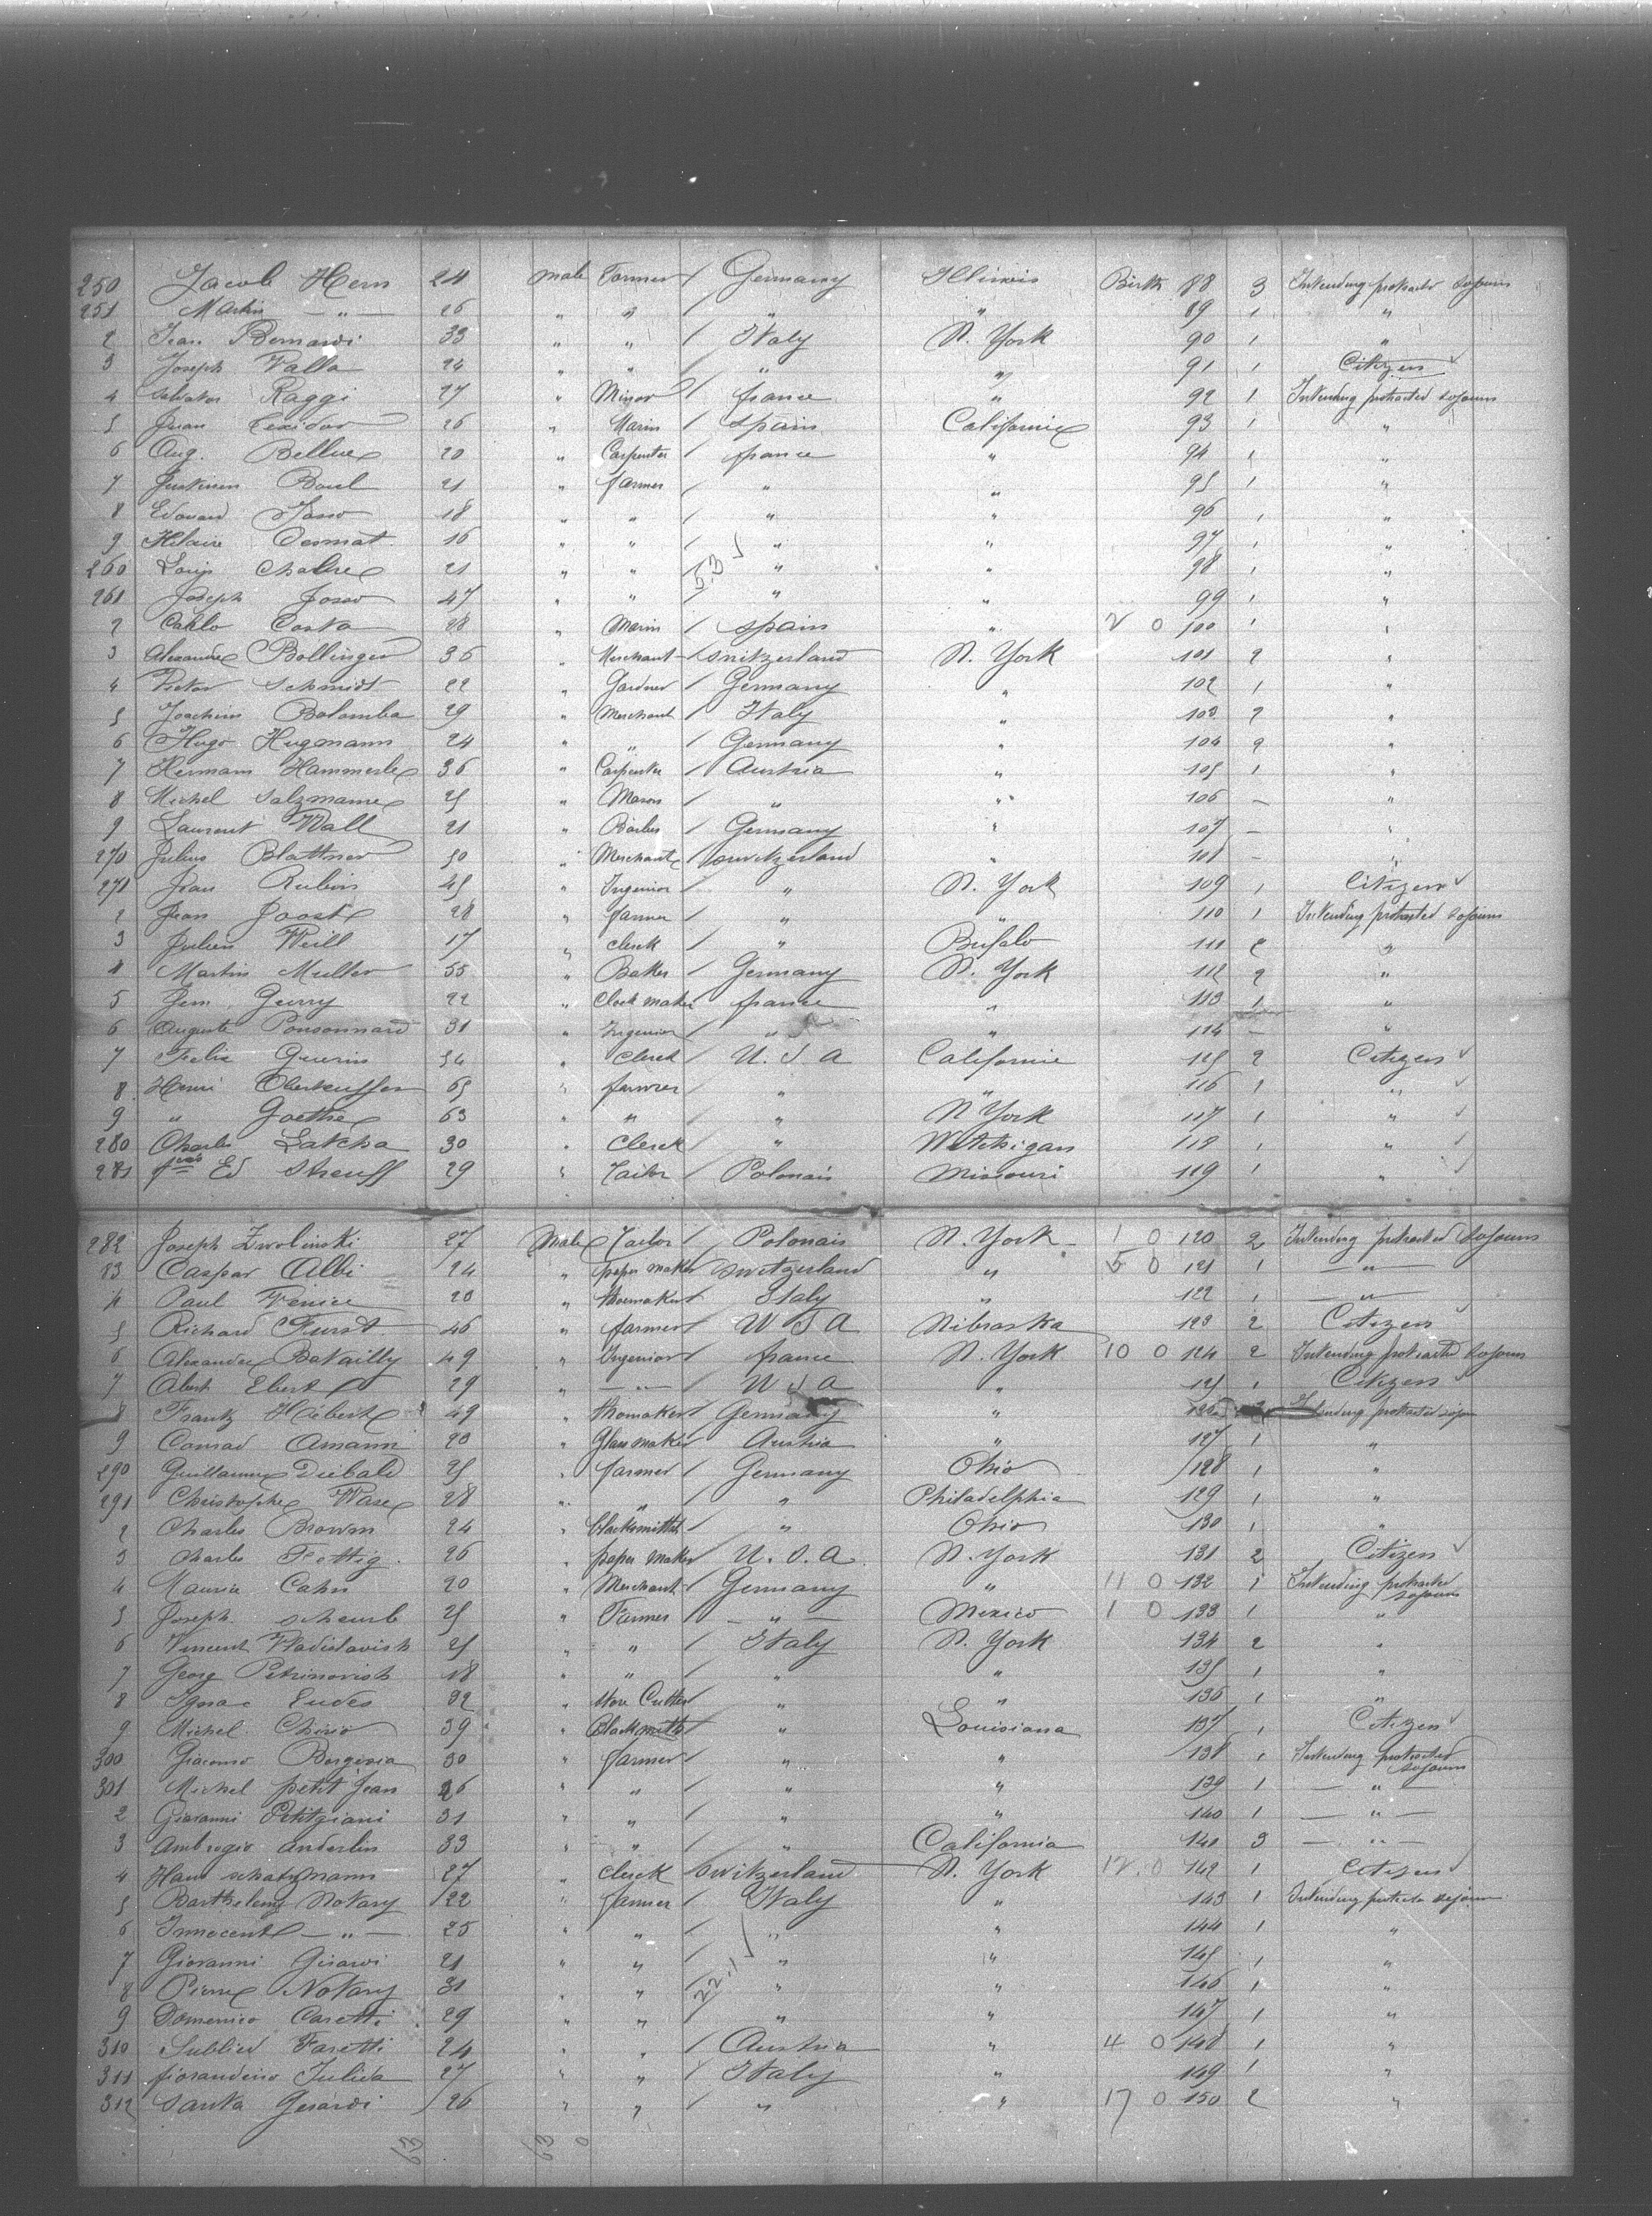 250 Jacob Hern 24 male Farmer / Germany Illinois Birth 88 3 Intending protracted sojourn
251 Martin — " — 26 " " " " 89 1 "
2 Jean Bernardi 33 " " / Italy N. York 90 1 "
3 Joseph Valla 24 " " / " " 91 1 Citizen ✓
4 Salvator Raggi 27 " Minor / france " 92 1 Intending protracted sojourn
5 Juan 26 " Marin / Spain Californie 93 1 "
6 Aug. Bellue 20 " Carpenter / france " 94 1 "
7 Baul 21 " farmer / " " 95 1 "
8 Edouard 18 " " / " " 96 1 "
9 Hilaire 16 " " / " " 97 1 "
260 Louis 21 " " 53 ✓ " " 98 1 "
261 Joseph 47 " " / " " 99 1 "
2 Carlo Costa 28 " Marin / Spain " 2 0 100 1 "
3 Alexandre Bollinger 36 " Merchant Snitzerland N. York 101 2 "
4 Victor Schmidt 22 " Gardner / Germany " 102 1 "
5 Joachim Bolomba 29 " Merchant / Italy " 103 2 "
6 Hugo Hugmann 24 " " / Germany " 104 2 "
7 Hermann Hammerle 36 " Carpenter / Austria " 105 1 "
8 Michel Salzmann 25 " Mason / " " 106 — "
9 Laurent Wall 21 " Barber / Germany " 107 — "
270 Julius Blattner 50 " Merchant / Switzerland " 108 — "
271 Jean Rubin 45 " Ingenior / " N. York 109 1 Citizen ✓
2 Jean Joost 28 " farmer / " " 110 1 Intending protracted sojourn
3 Julien Weill 17 " Clerck / " Bufalo 111 2 "
4 Martin Muller 55 " Baker / Germany N. York 112 2 "
5 Jem Gurry 22 " Clock maker france " 113 1 "
6 Auguste Ponsonnard 31 " Ingenior / " " 114 — "
7 Felix Guerin 34 " Clerck / U. S A Californie 115 2 Citizen ✓
8 Henri 65 " farmer / " " 116 1 " ✓
9 " Goethe 63 " " / " N York 117 1 " ✓
280 Charles Latcha 30 " Clerck / " Witchigan 118 1 " ✓
281 Ed Streuff 29 " Tailor / Polonais Missouri 119 1 " ✓
282 Joseph Zwolinski 27 Male Tailor / Polonais N. York 1 0 120 2 Intending protracted sojourn
83 Caspar Albi 24 " paper maker Switzerland " 5 0 121 1 — " —
4 Paul Venice 20 " shoemaker / Italy " 122 1 — " —
5 Richard Furst 46 " farmer / U S A Nibraska 123 2 Citizen ✓
6 Alexandre Batailly 49 " Ingenior / france N. York 10 0 124 2 Intending protracted sojourn
7 Albert Ebert 29 " — " — U S A " 125 1 Citizen ✓
8 Frantz Hiebert 49 " shomaker / Germany " 126 2 Intending protracted sojourn
9 Conrad Amann 20 " Glass maker Austria " 127 1 "
290 Guillaume Diebald 25 " farmer / Germany Ohio 128 1 "
291 Christophe Wase 28 " " / " Philadelphia 129 1 "
2 Charles Browm 24 " blacksmith / " Ohio 130 1 "
3 Charles Fettig 26 " paper maker U. S. A. N. York 131 2 Citizen ✓
4 Mauria Cahn 20 " Merchant / Germany " 11 0 132 1 Intending protracted sojourn
5 Joseph Scheurb 25 " Farmer / — " — Mexico 1 0 133 1 "
6 Vincent Vladislavish 25 " " / Italy N. York 134 2 "
7 Georg Petrinovish 18 " " / " " 135 1 "
8 Ignac Eudes 32 " stone Cutter " " 136 1 "
9 Michel Chirio 39 " Blacksmith " Louisiana 137 1 Citizen ✓
300 Giacomo Borginia 30 " farmer / " " 138 1 Intending protracted sojourn
301 Michel petit Jean 26 " " / " " 139 1 — " —
2 Giovanni Petitgiani 31 " " / " " 140 1 — " —
3 Ambrogio Anderlin 33 " " / " California 141 3 — " —
4 Hans Schatzmann 27 " Clerck Switzerland N. York 12 0 142 1 Citizen ✓
5 Barthelemy Notary 22 " farmer / Italy " 143 1 Intending protracted sojourn
6 Innocent — " — 25 " " / " " 144 1 "
7 Giovanni Girardi 21 " " / " " 145 1 "
8 Pierre Notary 31 " " 22 ✓ " " 146 1 "
9 Domenico Caretti 29 " " / " " 147 1 "
310 Faretti 24 " " / Austria " 4 0 148 1 "
311 27 " " / Italy " 149 1 "
312 Santa Gerardi 26 " " / " " 17 0 150 2 "
63 63 0